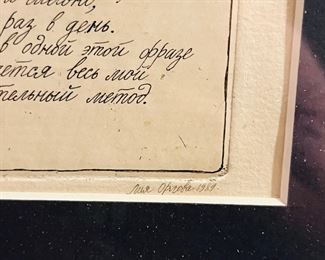 раз в день.
в одной этой фразе
ется весь мой
тельный метод.
Лия Орлова 1989